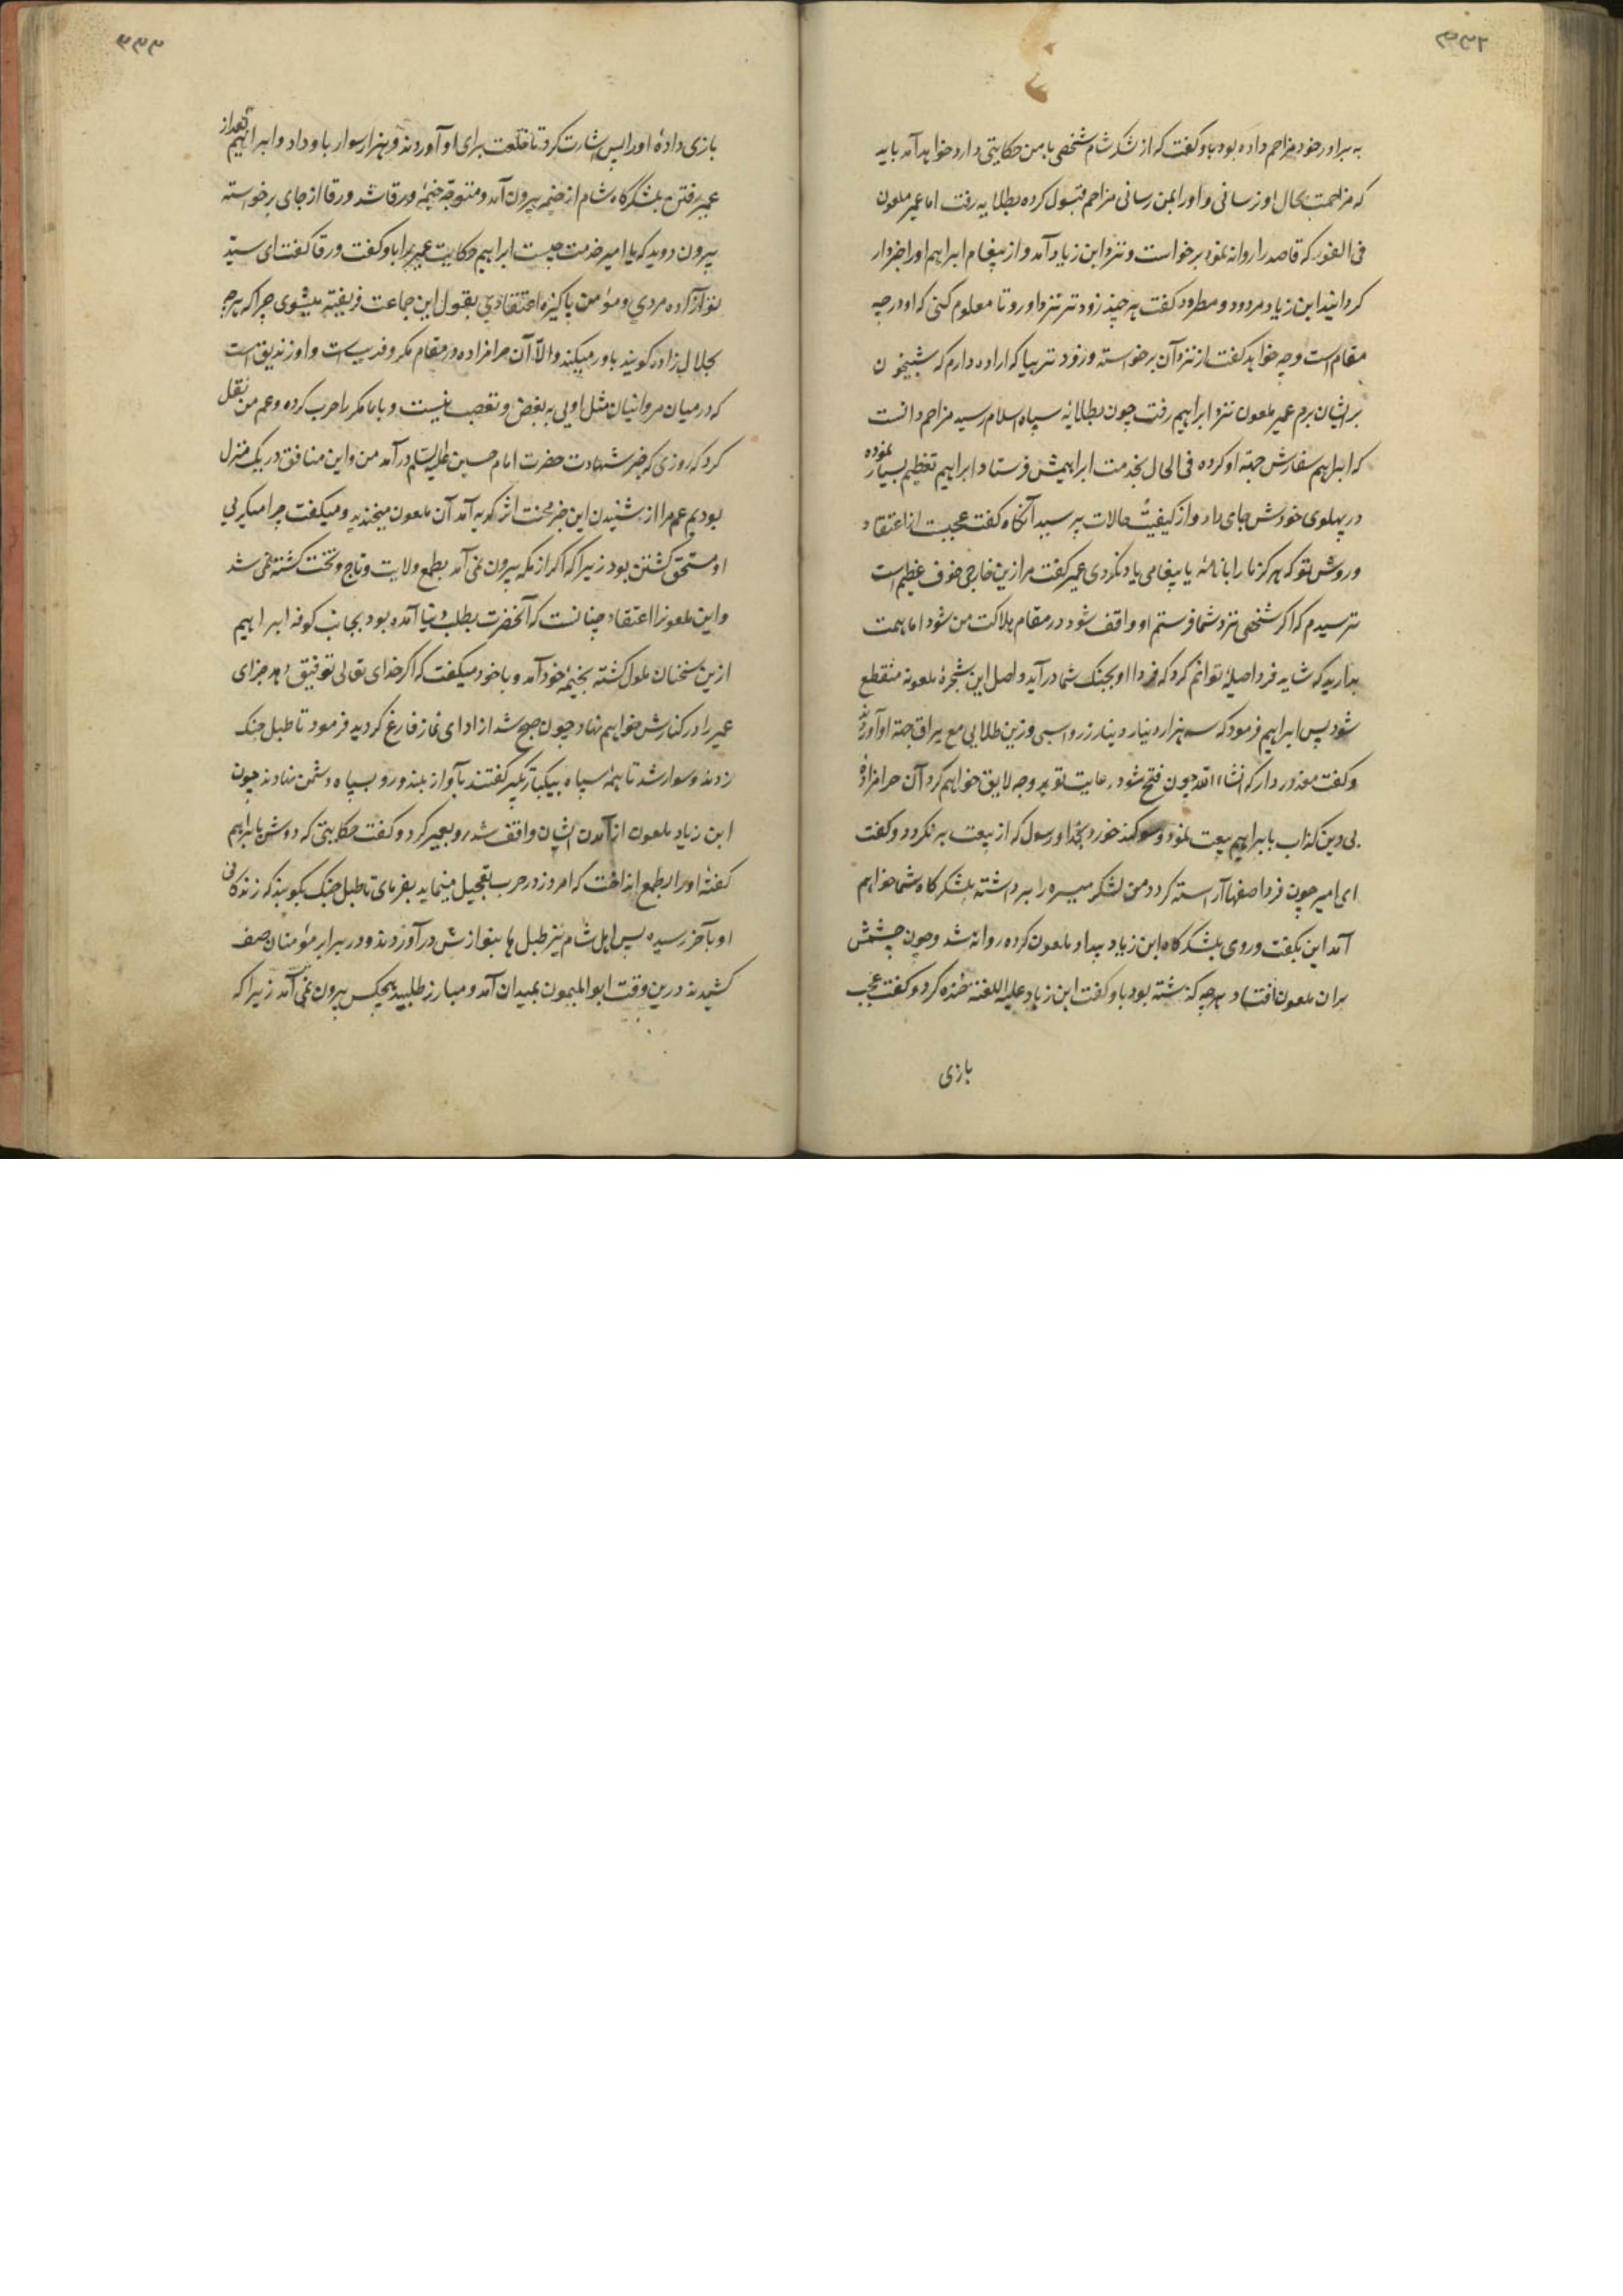 به برادر خود مزاحم داده بود باو گفت که از لشکر شام شخصی با من حکایتی دارد خواهد آمد باید
که مزاحمت بحال او نرسانی و او را بمن رسانی مزاحم قبول کرده بطلایه رفت اما عمیر ملعون
فی الفور که قاصد را روانه نمود برخواست و نزد ابن زیاد آمد و از پیغام ابراهیم او را خبردار
کردانید ابن زیاد مردود و مطرود کفت هر چند زودتر نزد او رو تا معلوم کنی که او در چه
مقام است و چه خواهد کفت از نزد آن برخواسته و زودتر بیا که اراده دارم که شبیخون
بر ایشان برم عمیر ملعون نزد ابراهیم رفت چون بطلایه سپاه اسلام رسید مزاحم دانست
که ابراهیم سفارش جهة او کرده فی الحال بخدمت ابراهیمش فرستاد ابراهیم تعظیم بسیار نموده
در پهلوی خودش جای داد و از کیفیت حالات پرسید آنکاه کفت عجبت از اعتقاد
و روش تو که هرکز ما را بنامهٔ یا پیغامی یاد نکردی عمیر کفت مرا ازین خارجی خوف عظیم است
ترسیدم که اکر شخصی نزد شما فرستم او واقف شود در مقام هلاکت من شود اما همت
بدارید که شاید فردا حیلهٔ توانم کرد که فردا او بجنک شما درآید و اصل این شجرهٔ ملعونه منقطع
شود پس ابراهیم فرمود که سه هزار دینار زر و اسبی و زین طلایی مع یراق جهة او آوردند
و کفت معذور دار که انشاءالله چون فتح شود رعایت تو بر وجه لایق خواهم کرد آن حرامزادهٔ
بی دین کذاب بابراهیم بیعت نمود و سوکند خورد بخدا و رسول که از بیعت برنکردد و کفت
ای امیر چون فردا صفها آراسته کردد من لشکر میسره را برداشته بلشکرکاه شما خواهم
آمد این بکفت و روی بلشکرکاه ابن زیاد بیداد ملعون کرده روانه شد و چون چشمش
بران ملعون افتاد هرچه کذشته بود باو کفت ابن زیاد علیه اللعنه خنده کرد و کفت عجب
بازی
بازی دادهٔ او را پس اشارت کرد تا خلعت برای او آوردند و هزار سوار باو داد و ابراهیم بعد از
عمیر رفتن بلشکرکاه شام از خیمه بیرون آمد و متوجه خیمهٔ ورقا شد ورقا از جای برخواسته
بیرون دوید که یا امیر خدمت چیست ابراهیم حکایت عمیر را باو کفت ورقا کفت ای سید
تو آزاده مردی و مؤمن پاکیزه اعتقادی بقول این جماعت فریفته میشوی چرا که هرچه
بحلال زاده کویند باور میکند والا آن حرامزاده در مقام مکر و فریب است و او زندیق است
که در میان مروانیان مثل اویی به بغض و تعصب نیست و با ما مکرر حرب کرده و عم من نقل
کرد که روزی که خبر شهادت حضرت امام حسین علیه السلم درآمد من و این منافق در یک منزل
بودیم عم مرا از شنیدن این خبر محنت اثر کریه آمد آن ملعون میخندید و میکفت چرا میکریی
او مستحق کشتن بود زیرا که اکر از مکه بیرون نمی آمد بطمع ولایت و تاج و تخت کشته نمی شد
و این ملعونرا اعتقاد چنانست که آنحضرت بطلب دنیا آمده بود بجانب کوفه ابراهیم
ازین سخنان ملول کشته بخیمهٔ خود آمد و با خود میکفت که اکر خدای تعالی توفیق دهد جزای
عمیر را در کنارش خواهم نهاد چون صبح شد از ادای نماز فارغ کردید فرمود تا طبل جنک
زدند و سوار شد تا همهٔ سپاه بیکبار تکبیر کفتند بآواز بلند و رو بسپاه دشمن نهادند چون
ابن زیاد ملعون از آمدن ایشان واقف شد رو بعمیر کرد و کفت حکایتی که دوش بابراهیم
کفتهٔ او را بطمع انداخت که امروز در حرب تعجیل مینماید بفرمای تا طبل جنک بکوبند که زندکانی
او بآخر رسیده پس اهل شام نیز طبل ها بنوازش درآوردند و در برابر مؤمنان صف
کشیدند درین وقت ابوالمیمون بمیدان آمد و مبارز طلبید هیچکس بیرون نمی آمد زیرا که